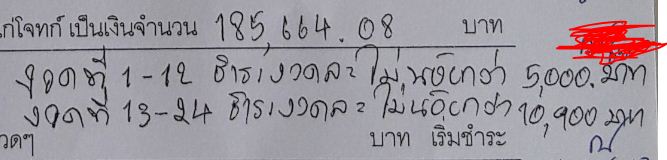 แก่โจทก์ เป็นเงินจำนวน 185,664.08 บาท
งวดที่ 1-12 ชำระงวดละ ไม่น้อยกว่า 5,000.บาท
งวดที่ 13-24 ชำระงวดละ ไม่น้อยกว่า 10,900 บาท
วดๆ บาท เริ่มชำระ ณ